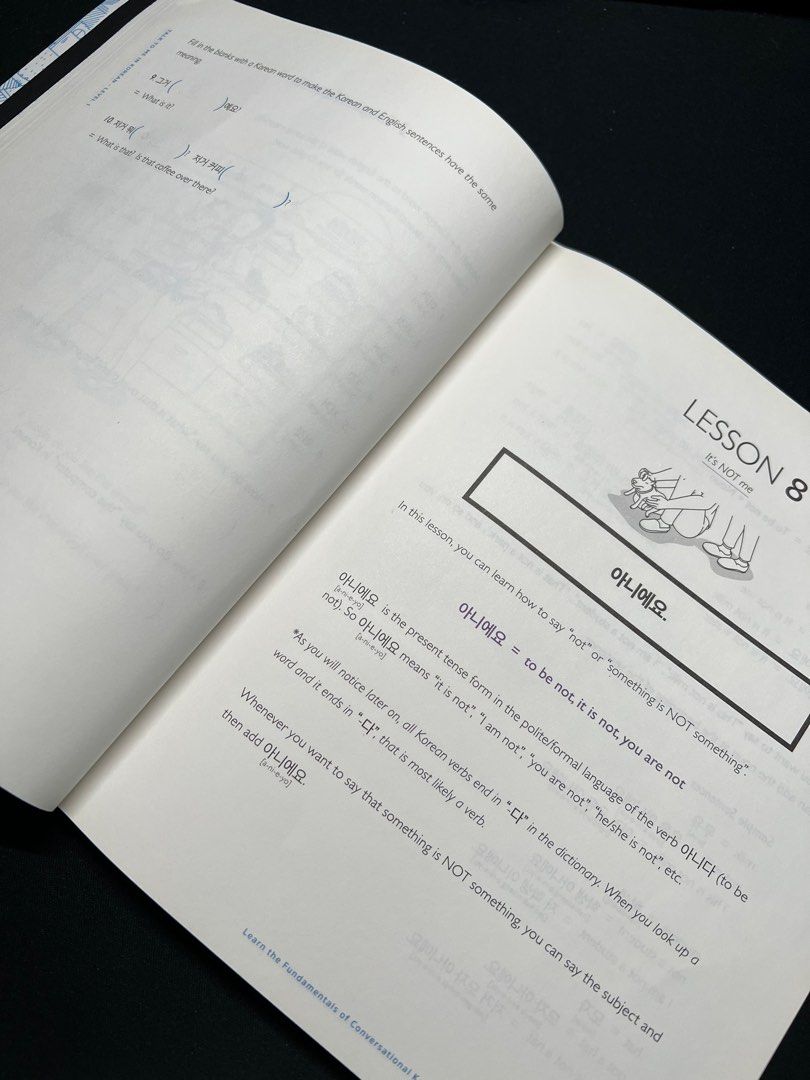 TALK TO ME IN KOREAN LEVEL 1
Fill in the blanks with a Korean word to make the Korean and English sentences have the same
meaning.
9. 그거 ( )예요?
= What is it?
10. 저거 뭐( )? 저거 커피( )?
= What is that? Is that coffee over there?
LESSON 8
It's NOT me
아니에요.
In this lesson, you can learn how to say "not" or "something is NOT something".
아니에요 = to be not, it is not, you are not
아니에요 is the present tense form in the polite/formal language of the verb 아니다 (to be
[a-ni-e-yo]
not). So 아니에요 means "it is not", "I am not", "you are not", "he/she is not", etc.
[a-ni-e-yo]
*As you will notice later on, all Korean verbs end in "-다" in the dictionary. When you look up a
word and it ends in "-다", that is most likely a verb.
Whenever you want to say that something is NOT something, you can say the subject and
then add 아니에요.
[a-ni-e-yo]
Learn the Fundamentals of Conversational K